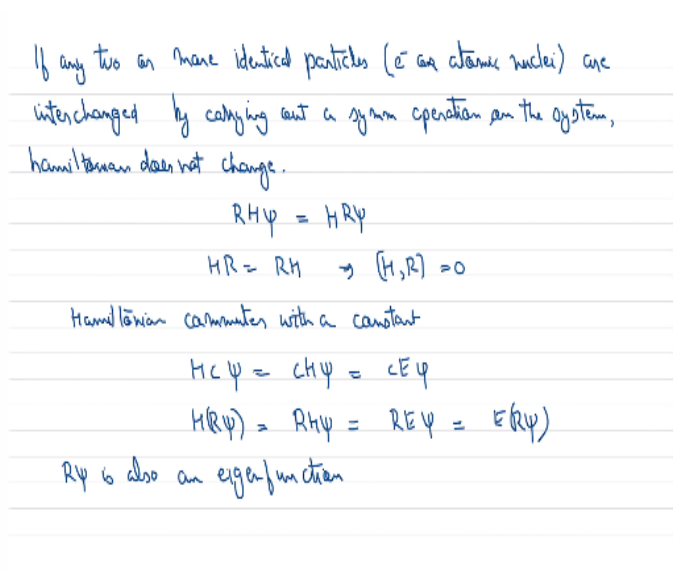 If any two or more identical particles (e⁻ or atomic nuclei) are
interchanged by carrying out a symm operation on the system,
hamiltonian does not change.
RHψ = HRψ
HR = RH → [H,R] = 0
Hamiltonian commutes with a constant
Hcψ = cHψ = cEψ
H(Rψ) = RHψ = REψ = E(Rψ)
Rψ is also an eigenfunction